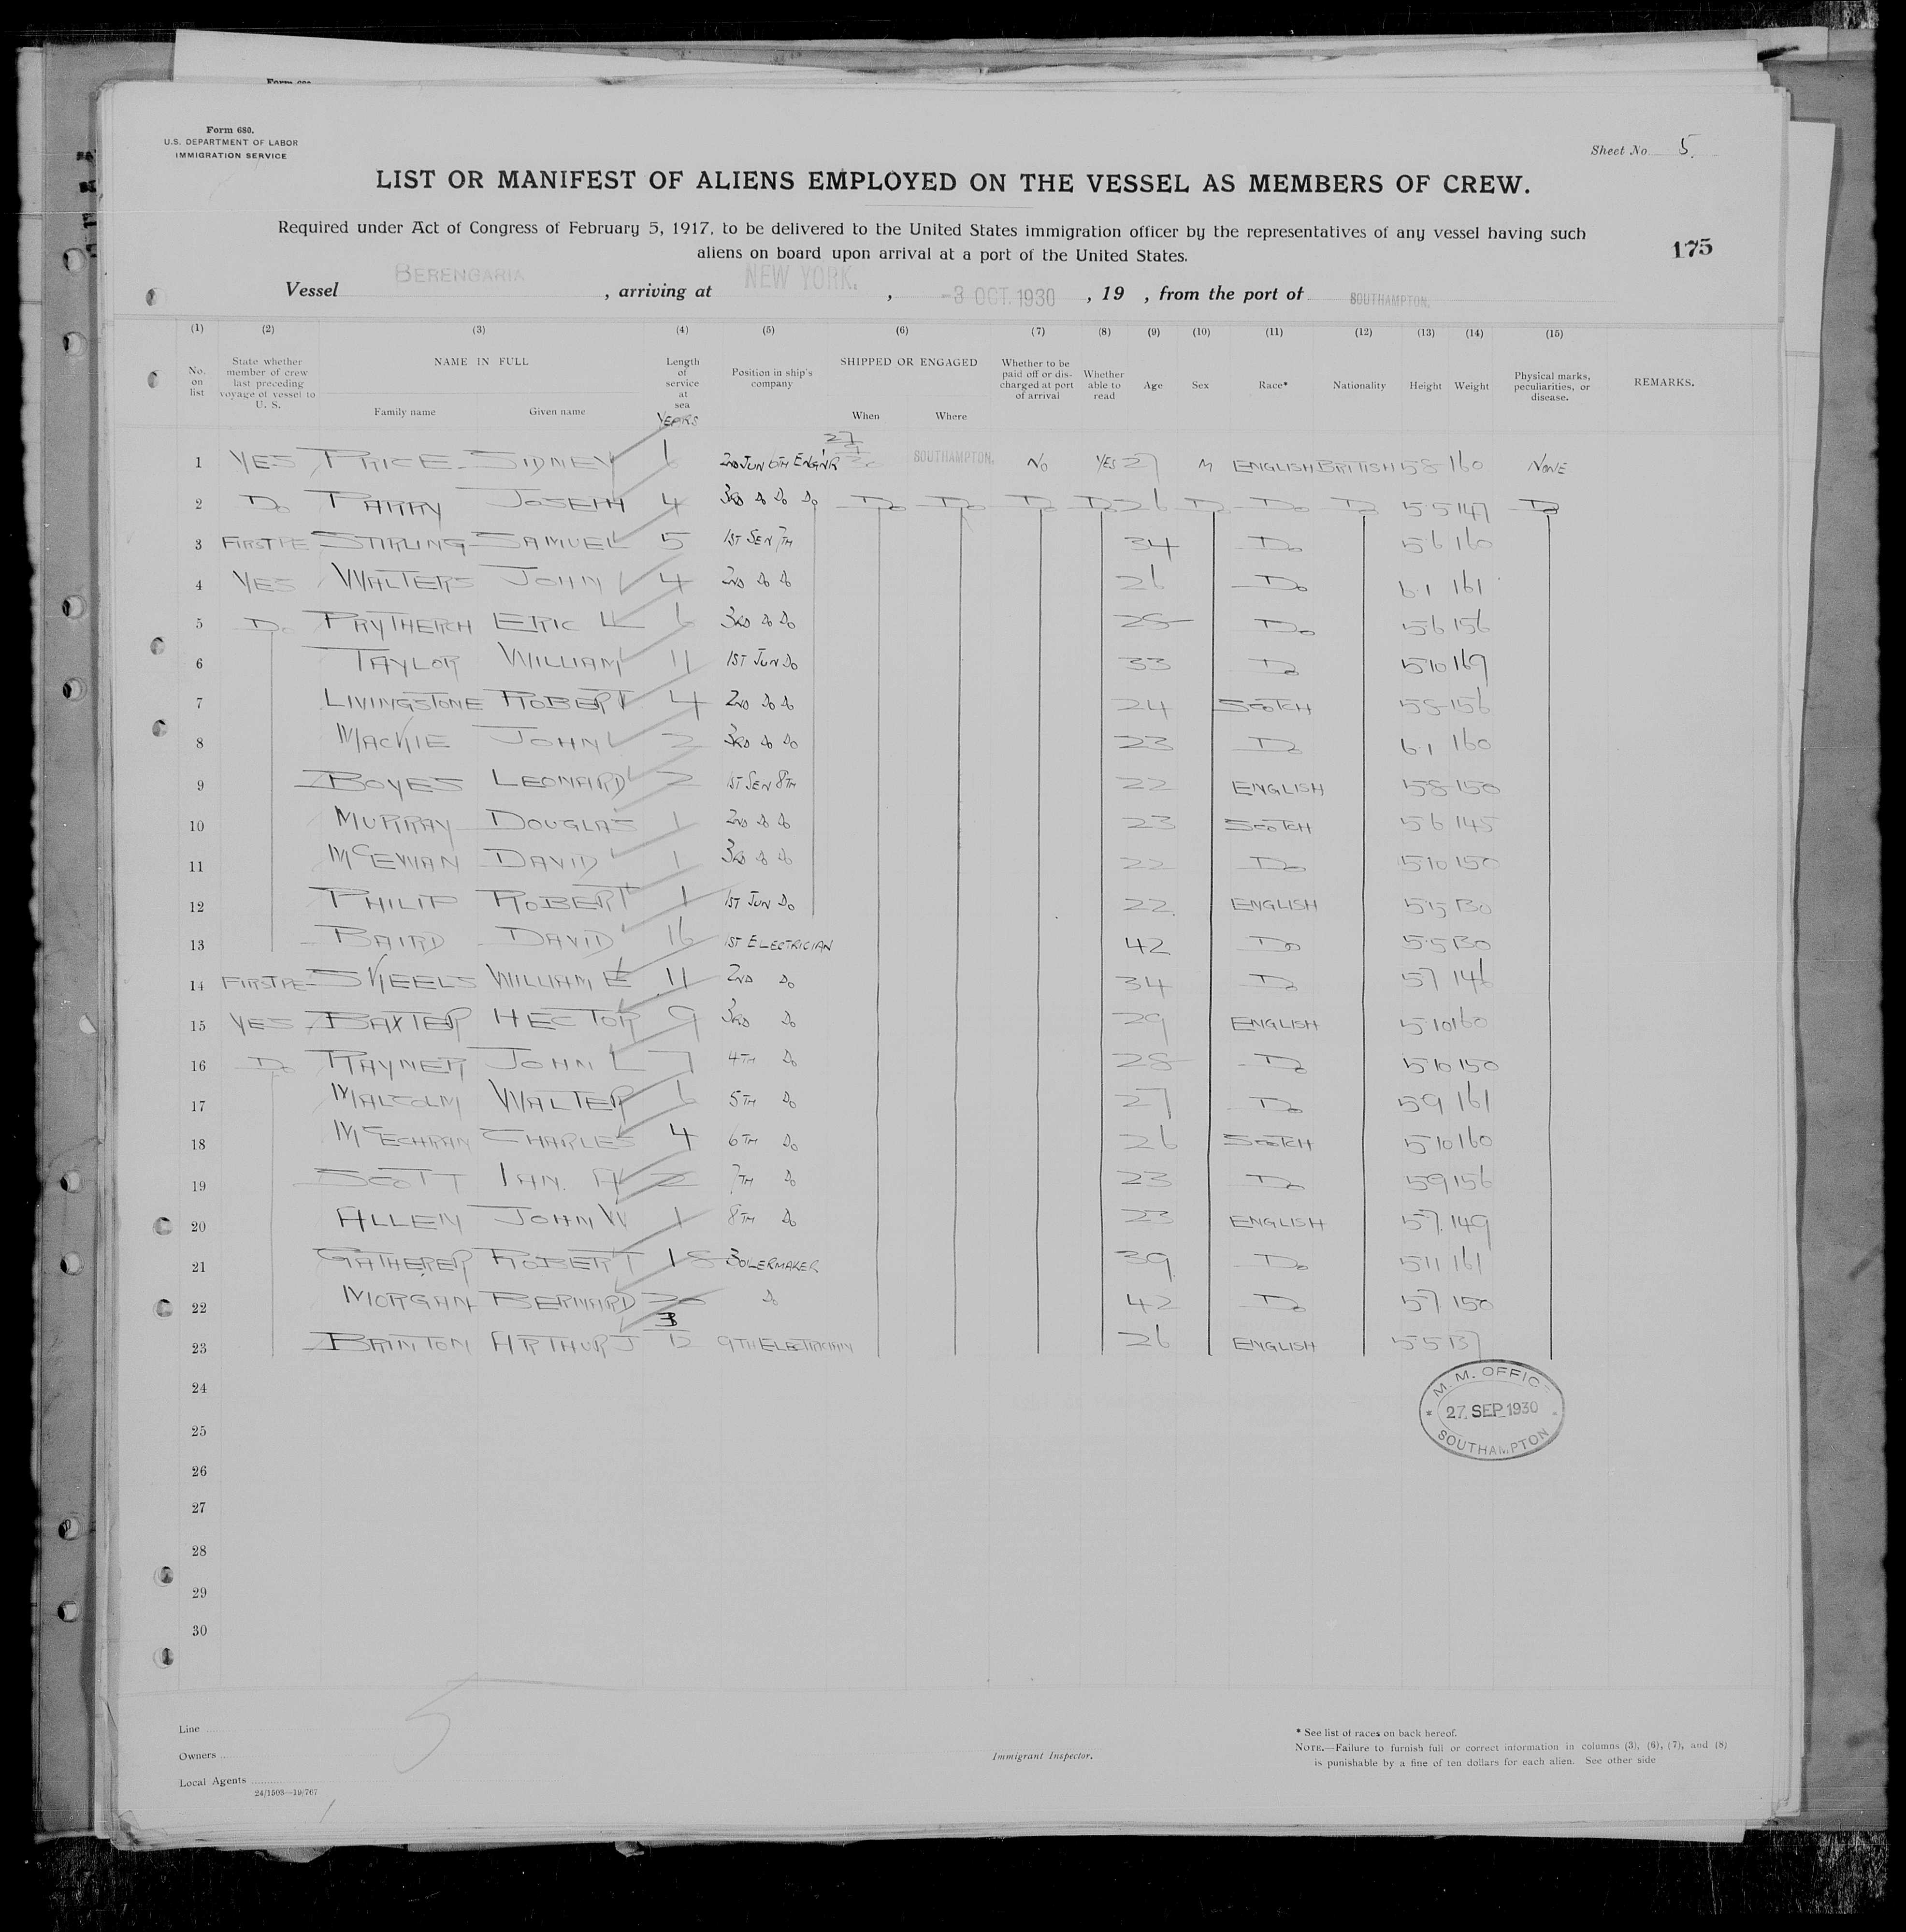 Form 680.
U.S. DEPARTMENT OF LABOR
IMMIGRATION SERVICE
Sheet No 5.
LIST OR MANIFEST OF ALIENS EMPLOYED ON THE VESSEL AS MEMBERS OF CREW.
Required under Act of Congress of February 5, 1917, to be delivered to the United States immigration officer by the representatives of any vessel having such
aliens on board upon arrival at a port of the United States.
175
Vessel BERENGARIA, arriving at NEW YORK., -3 OCT. 1930, 19 , from the port of SOUTHAMPTON.
(1) (2) (3) (4) (5) (6) (7) (8) (9) (10) (11) (12) (13) (14) (15)
No. on list State whether member of crew last preceding voyage of vessel to U. S. NAME IN FULL Family name Given name Length of service at sea YEARS Position in ship's company SHIPPED OR ENGAGED When Where Whether to be paid off or discharged at port of arrival Whether able to read Age Sex Race* Nationality Height Weight Physical marks, peculiarities, or disease. REMARKS.
1 YES PRICE SIDNEY 6 2ND JUN 6TH ENGN'R 27/9/30 SOUTHAMPTON. NO YES 27 M ENGLISH BRITISH 5 8 160 NONE
2 Do PARRY JOSEPH 4 3RD Do Do Do Do Do Do Do 26 Do Do Do 5 5 147 Do
3 FIRST STIRLING SAMUEL 5 1ST SEN 7TH 34 Do 5 6 160
4 YES WALTERS JOHN 4 2ND Do Do 26 Do 6.1 161
5 Do PRYTHERCH ERIC L 6 3RD Do Do 25 Do 5 6 156
6 TAYLOR WILLIAM 11 1ST JUN Do 33 Do 5 10 169
7 LIVINGSTONE ROBERT 4 2ND Do Do 24 SCOTCH 5 8 156
8 MACKIE JOHN 2 3RD Do Do 23 Do 6.1 160
9 BOYES LEONARD 2 1ST SEN 8TH 22 ENGLISH 5 8 150
10 MURRAY DOUGLAS 1 2ND Do Do 23 SCOTCH 5 6 145
11 McEWAN DAVID 1 3RD Do Do 22 Do 5 10 150
12 PHILIP ROBERT 1 1ST JUN Do 22 ENGLISH 5 5 130
13 BAIRD DAVID 16 1ST ELECTRICIAN 42 Do 5 5 130
14 FIRST SKEELS WILLIAM E 11 2ND Do 34 Do 5 7 146
15 YES BAXTER HECTOR 9 3RD Do 29 ENGLISH 5 10 160
16 Do RAYNER JOHN L 7 4TH Do 28 Do 5 10 150
17 MALCOLM WALTER 6 5TH Do 27 Do 5 9 161
18 McECHRAN CHARLES 4 6TH Do 26 SCOTCH 5 10 160
19 SCOTT IAN. A 2 7TH Do 23 Do 5 9 156
20 ALLEN JOHN W 1 8TH Do 23 ENGLISH 5 7 149
21 GATHERER ROBERT 18 BOLERMAKER 39 Do 5 11 161
22 MORGAN BERNARD 20 Do 42 Do 5 7 150
23 BRINTON ARTHUR J 3 9TH ELECTRICIAN 26 ENGLISH 5 5 137
24
25
26
27
28
29
30
M. M. OFFICE
27 SEP 1930
SOUTHAMPTON
5
Line
Owners
Local Agents
24/1503—19/767
Immigrant Inspector.
* See list of races on back hereof.
NOTE.—Failure to furnish full or correct information in columns (3), (6), (7), and (8)
is punishable by a fine of ten dollars for each alien. See other side